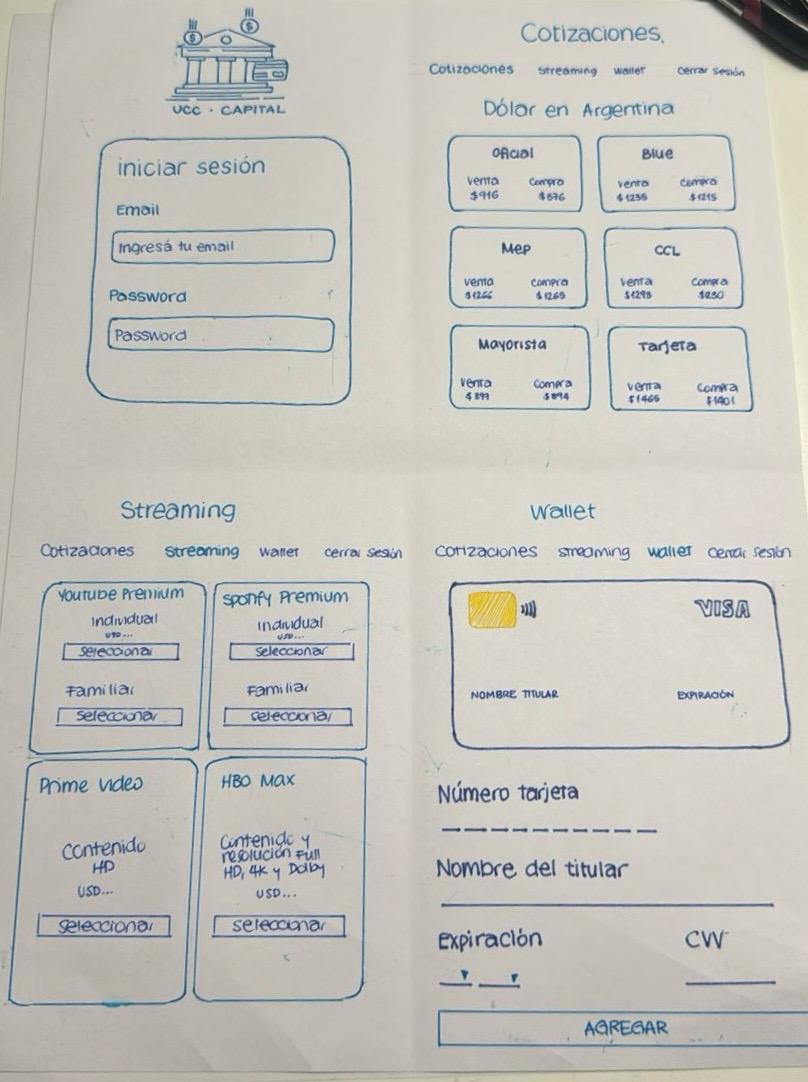 UCC · CAPITAL
iniciar sesión
Email
Ingresá tu email
Password
Password
Cotizaciones.
Cotizaciones streaming wallet cerrar sesión
Dólar en Argentina
Oficial
venta compra
$916 $876
Blue
venta compra
$1235 $1215
Mep
venta compra
$1266 $1265
CCL
venta compra
$1293
Mayorista
venta compra
$897 $894
Tarjeta
venta compra
$1465 $1401
Streaming
Cotizaciones streaming wallet cerrar sesión
Youtube Premium
Individual
USD...
seleccionar
Familiar
seleccionar
Spotify Premium
Individual
USD...
seleccionar
Familiar
seleccionar
Prime video
Contenido
HD
USD...
seleccionar
HBO Max
Contenido y
resolución Full
HD, 4K y Dolby
USD...
seleccionar
Wallet
Cotizaciones streaming wallet cerrar sesión
VISA
NOMBRE TITULAR EXPIRACIÓN
Número tarjeta
Nombre del titular
Expiración CVV
AGREGAR